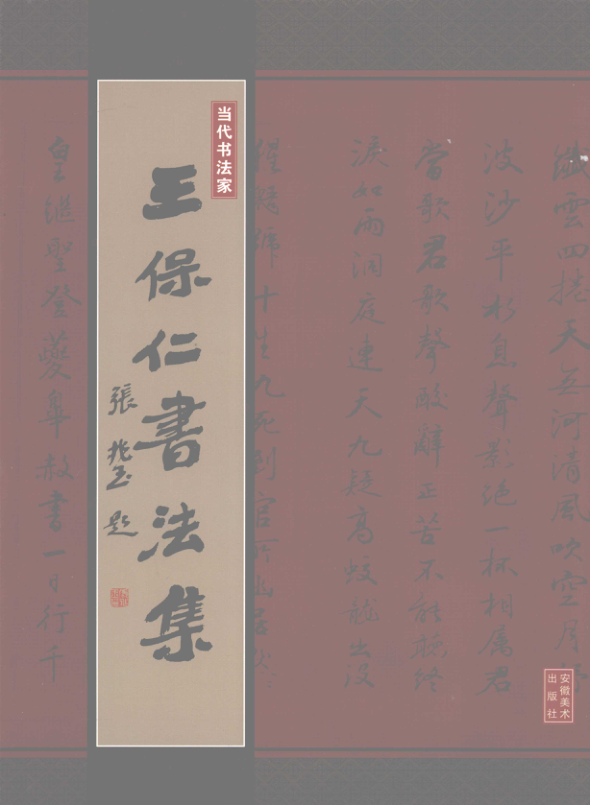 当代书法家
王保仁書法集
張兆玉題
纖雲四捲天無河清風吹空月舒
波沙平水息聲影絕一杯相屬君
當歌君歌聲酸辭正苦不能聽終
淚如雨洞庭連天九疑高蛟龍出沒
猩鼯號十生九死到官所幽居默
皇繼聖登夔皋赦書一日行千
安徽美术
出版社